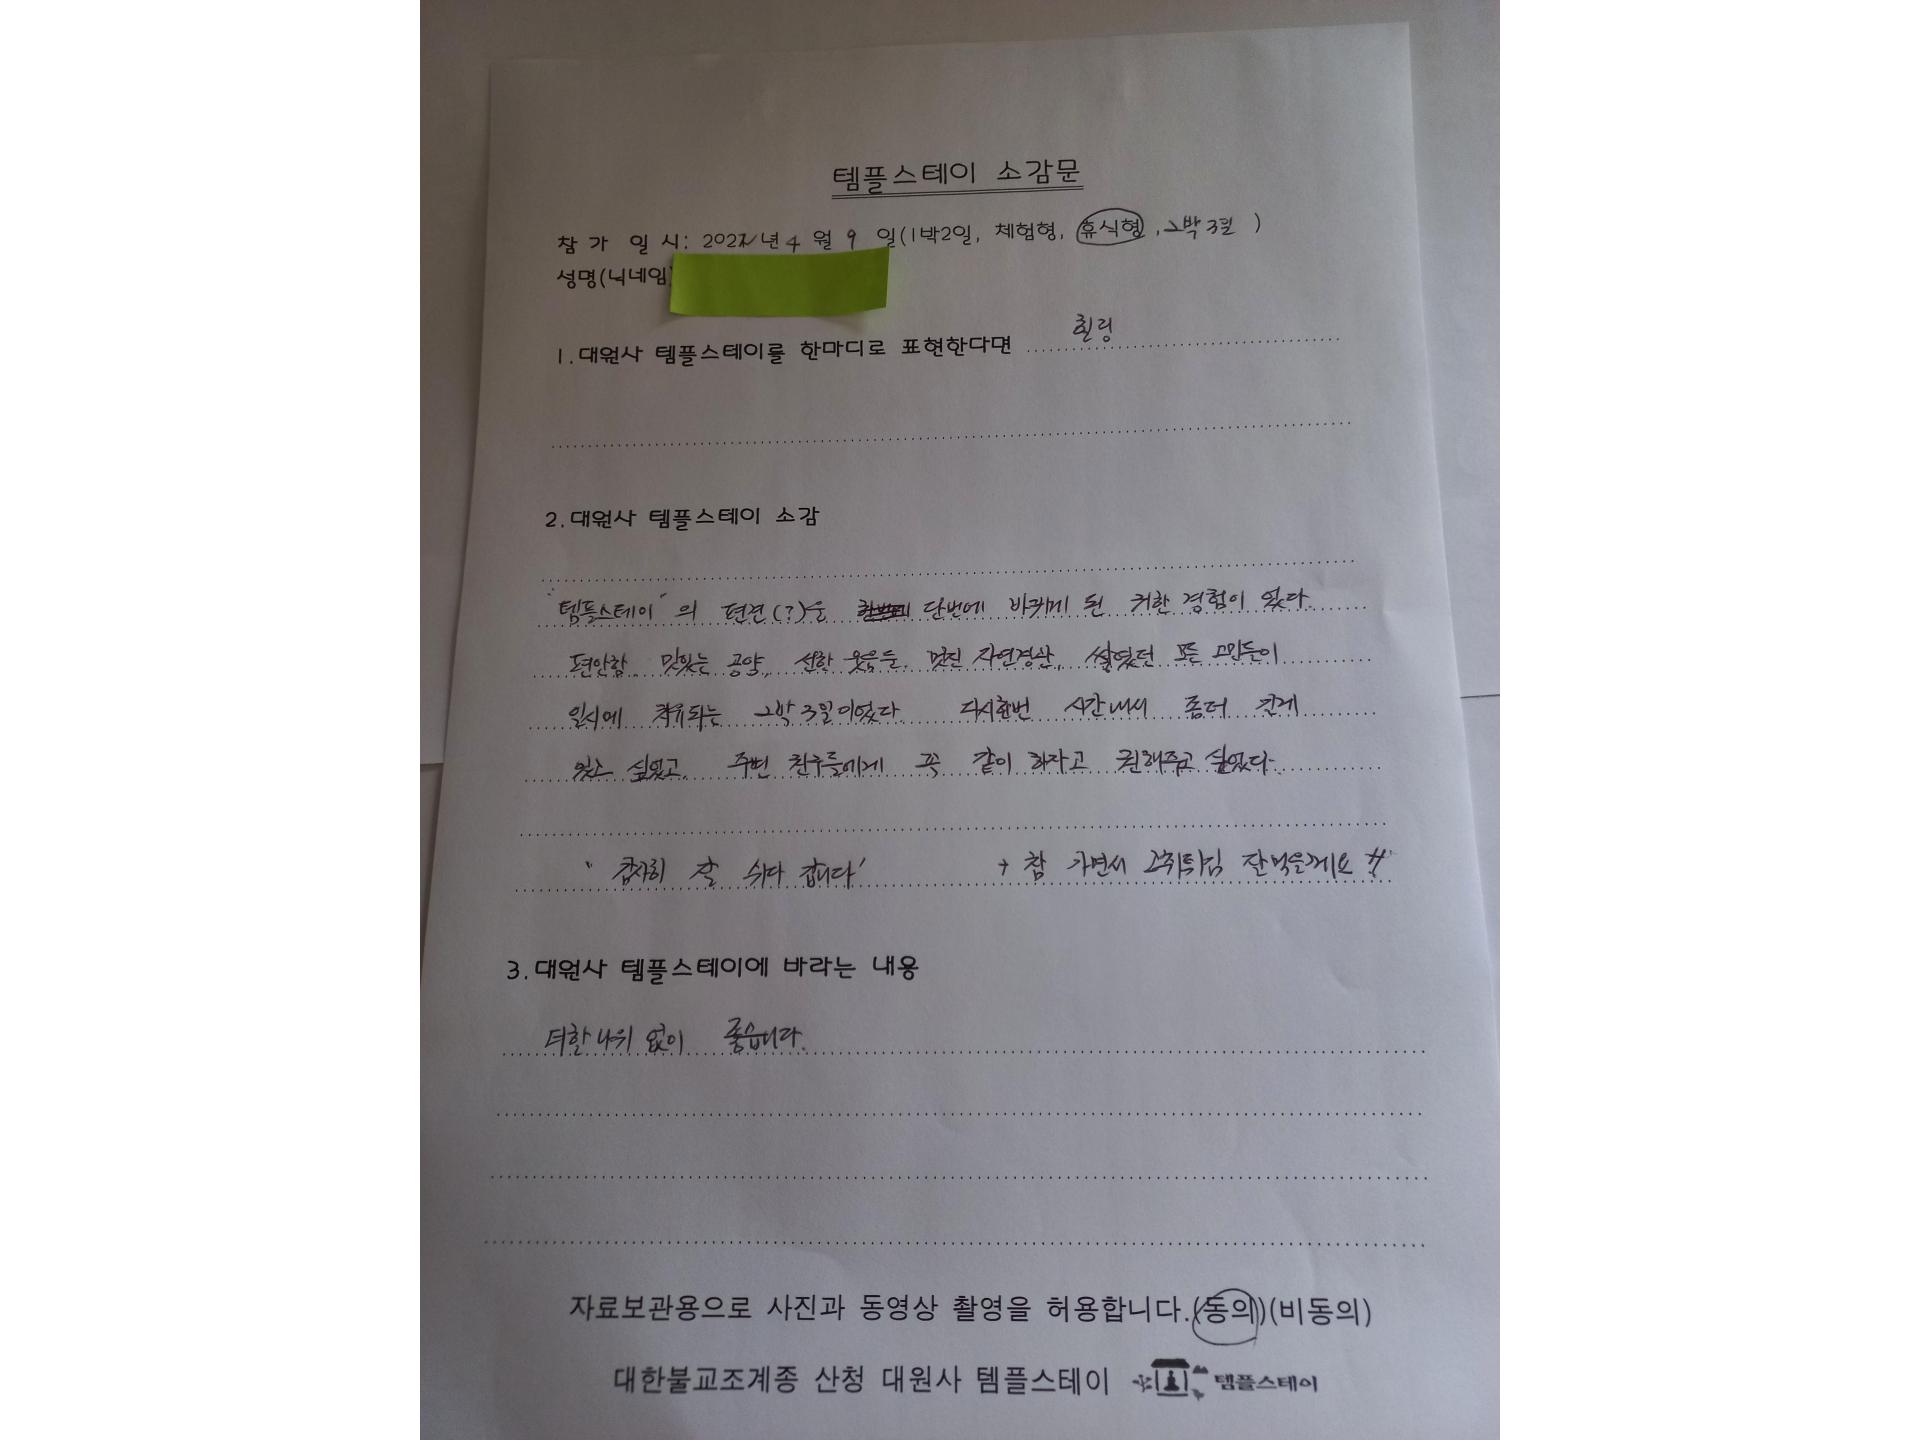 템플스테이 소감문
참 가 일 시: 2022년 4 월 9 일(1박2일, 체험형, 휴식형, 2박3일 )
성명(닉네임)
1.대원사 템플스테이를 한마디로 표현한다면 힐링
2.대원사 템플스테이 소감
"템플스테이"의 편견(?)을 단번에 바뀌게 된 귀한 경험이 었다.
편안함, 맛있는 공양, 선한 웃음들, 멋진 자연경관, 쌓였던 모든 고민들이
일시에 치유되는 2박3일이었다. 다시한번 시간내서 좀더 길게
있고 싶었고, 주변 친구들에게 꼭 같이 하자고 권해주고 싶었다.
"감사히 잘 쉬다 갑니다" + 참 가면서 고취튀김 잘먹을게요 ^^
3.대원사 템플스테이에 바라는 내용
더할나위 없이 좋습니다.
자료보관용으로 사진과 동영상 촬영을 허용합니다.(동의)(비동의)
대한불교조계종 산청 대원사 템플스테이 템플스테이